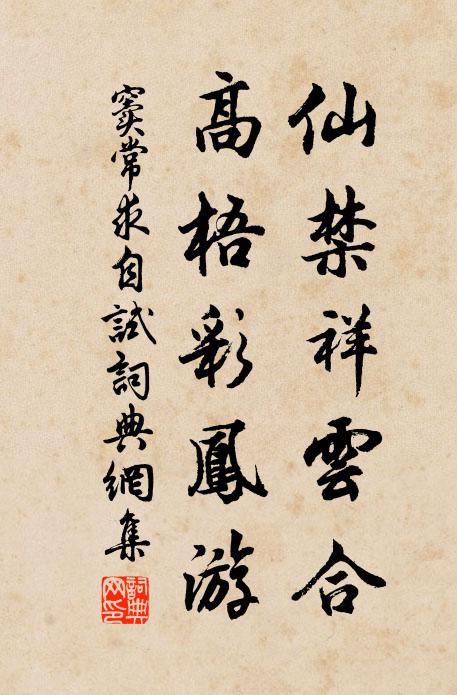 仙禁祥雲合
高梧彩鳳游
竇常求自試詞典網集
詞典網印